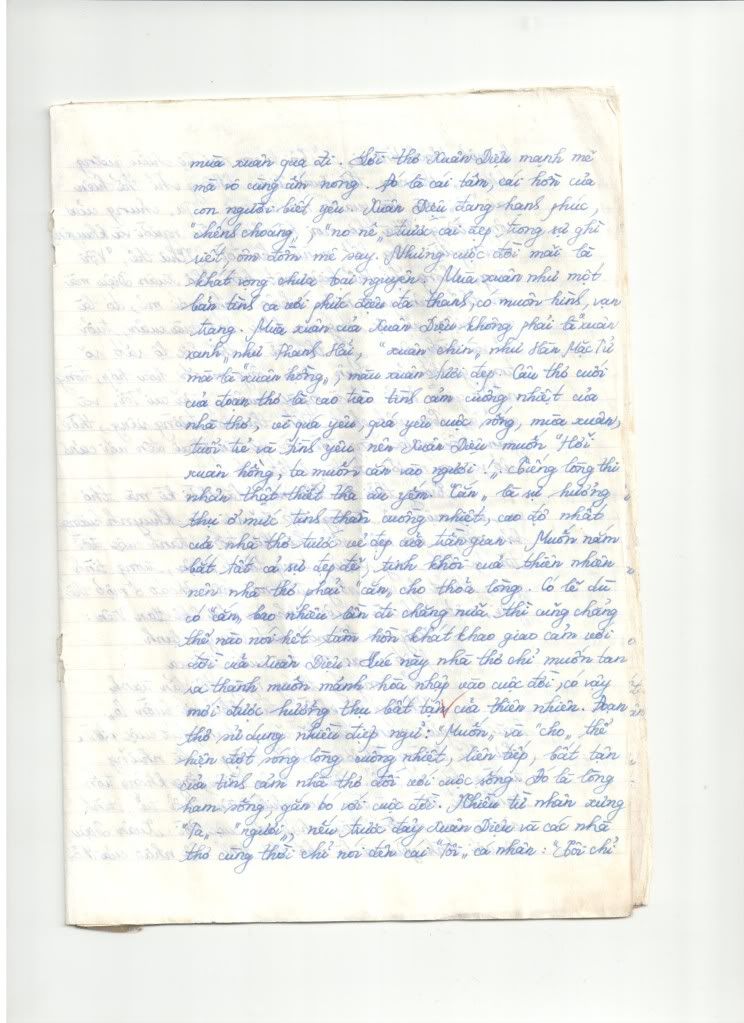 mùa xuân qua đi. Lời thơ Xuân Diệu mạnh mẽ
mà vô cùng ấm nóng. Đó là cái tâm, cái hồn của
con người biết yêu. Xuân Diệu đang hạnh phúc,
"chếnh choáng", "no nê" trước cái đẹp, trong sự ghì
siết, ôm đồm, mê say. Nhưng cuộc đời mãi là
khát vọng chưa toại nguyện. Mùa xuân như một
bản tình ca với phức điệu đa thanh, có muôn hình, vạn
trạng. Mùa xuân của Xuân Diệu không phải là "xuân
xanh" như Thanh Hải, "xuân chín" như Hàn Mặc Tử
mà là "xuân hồng", màu xuân tươi đẹp. Câu thơ cuối
của đoạn thơ là cao trào tình cảm cuồng nhiệt của
nhà thơ, vì quá yêu, quá yêu cuộc sống, mùa xuân,
tuổi trẻ và tình yêu nên Xuân Diệu muốn "Hỡi
xuân hồng, ta muốn cắn vào ngươi!" Tiếng lòng thi
nhân thật thiết tha âu yếm. "Cắn" là sự hưởng
thụ ở mức tinh thần cuồng nhiệt, cao độ nhất
của nhà thơ trước vẻ đẹp của trần gian. Muốn nắm
bắt tất cả sự đẹp đẽ, tinh khôi của thiên nhiên
nên nhà thơ phải "cắn" cho thỏa lòng. Có lẽ dù
có "cắn" bao nhiêu lần đi chăng nữa, thì cũng chẳng
thể nào nói hết tâm hồn khát khao giao cảm với
đời của Xuân Diệu. Lúc này nhà thơ chỉ muốn tan
ra thành muôn mảnh hòa nhập vào cuộc đời, có vậy
mới được hưởng thụ bất tận của thiên nhiên. Đoạn
thơ sử dụng nhiều điệp ngữ: "Muốn" và "cho" thể
hiện đợt sóng lòng cuồng nhiệt, liên tiếp, bất tận
của tình cảm nhà thơ đối với cuộc sống. Đó là lòng
ham sống, gắn bó với cuộc đời. Nhiều từ nhân xưng
"Ta", "ngươi", nếu trước đây Xuân Diệu và các nhà
thơ cùng thời chỉ nói đến cái "Tôi" cá nhân: "Tôi chỉ